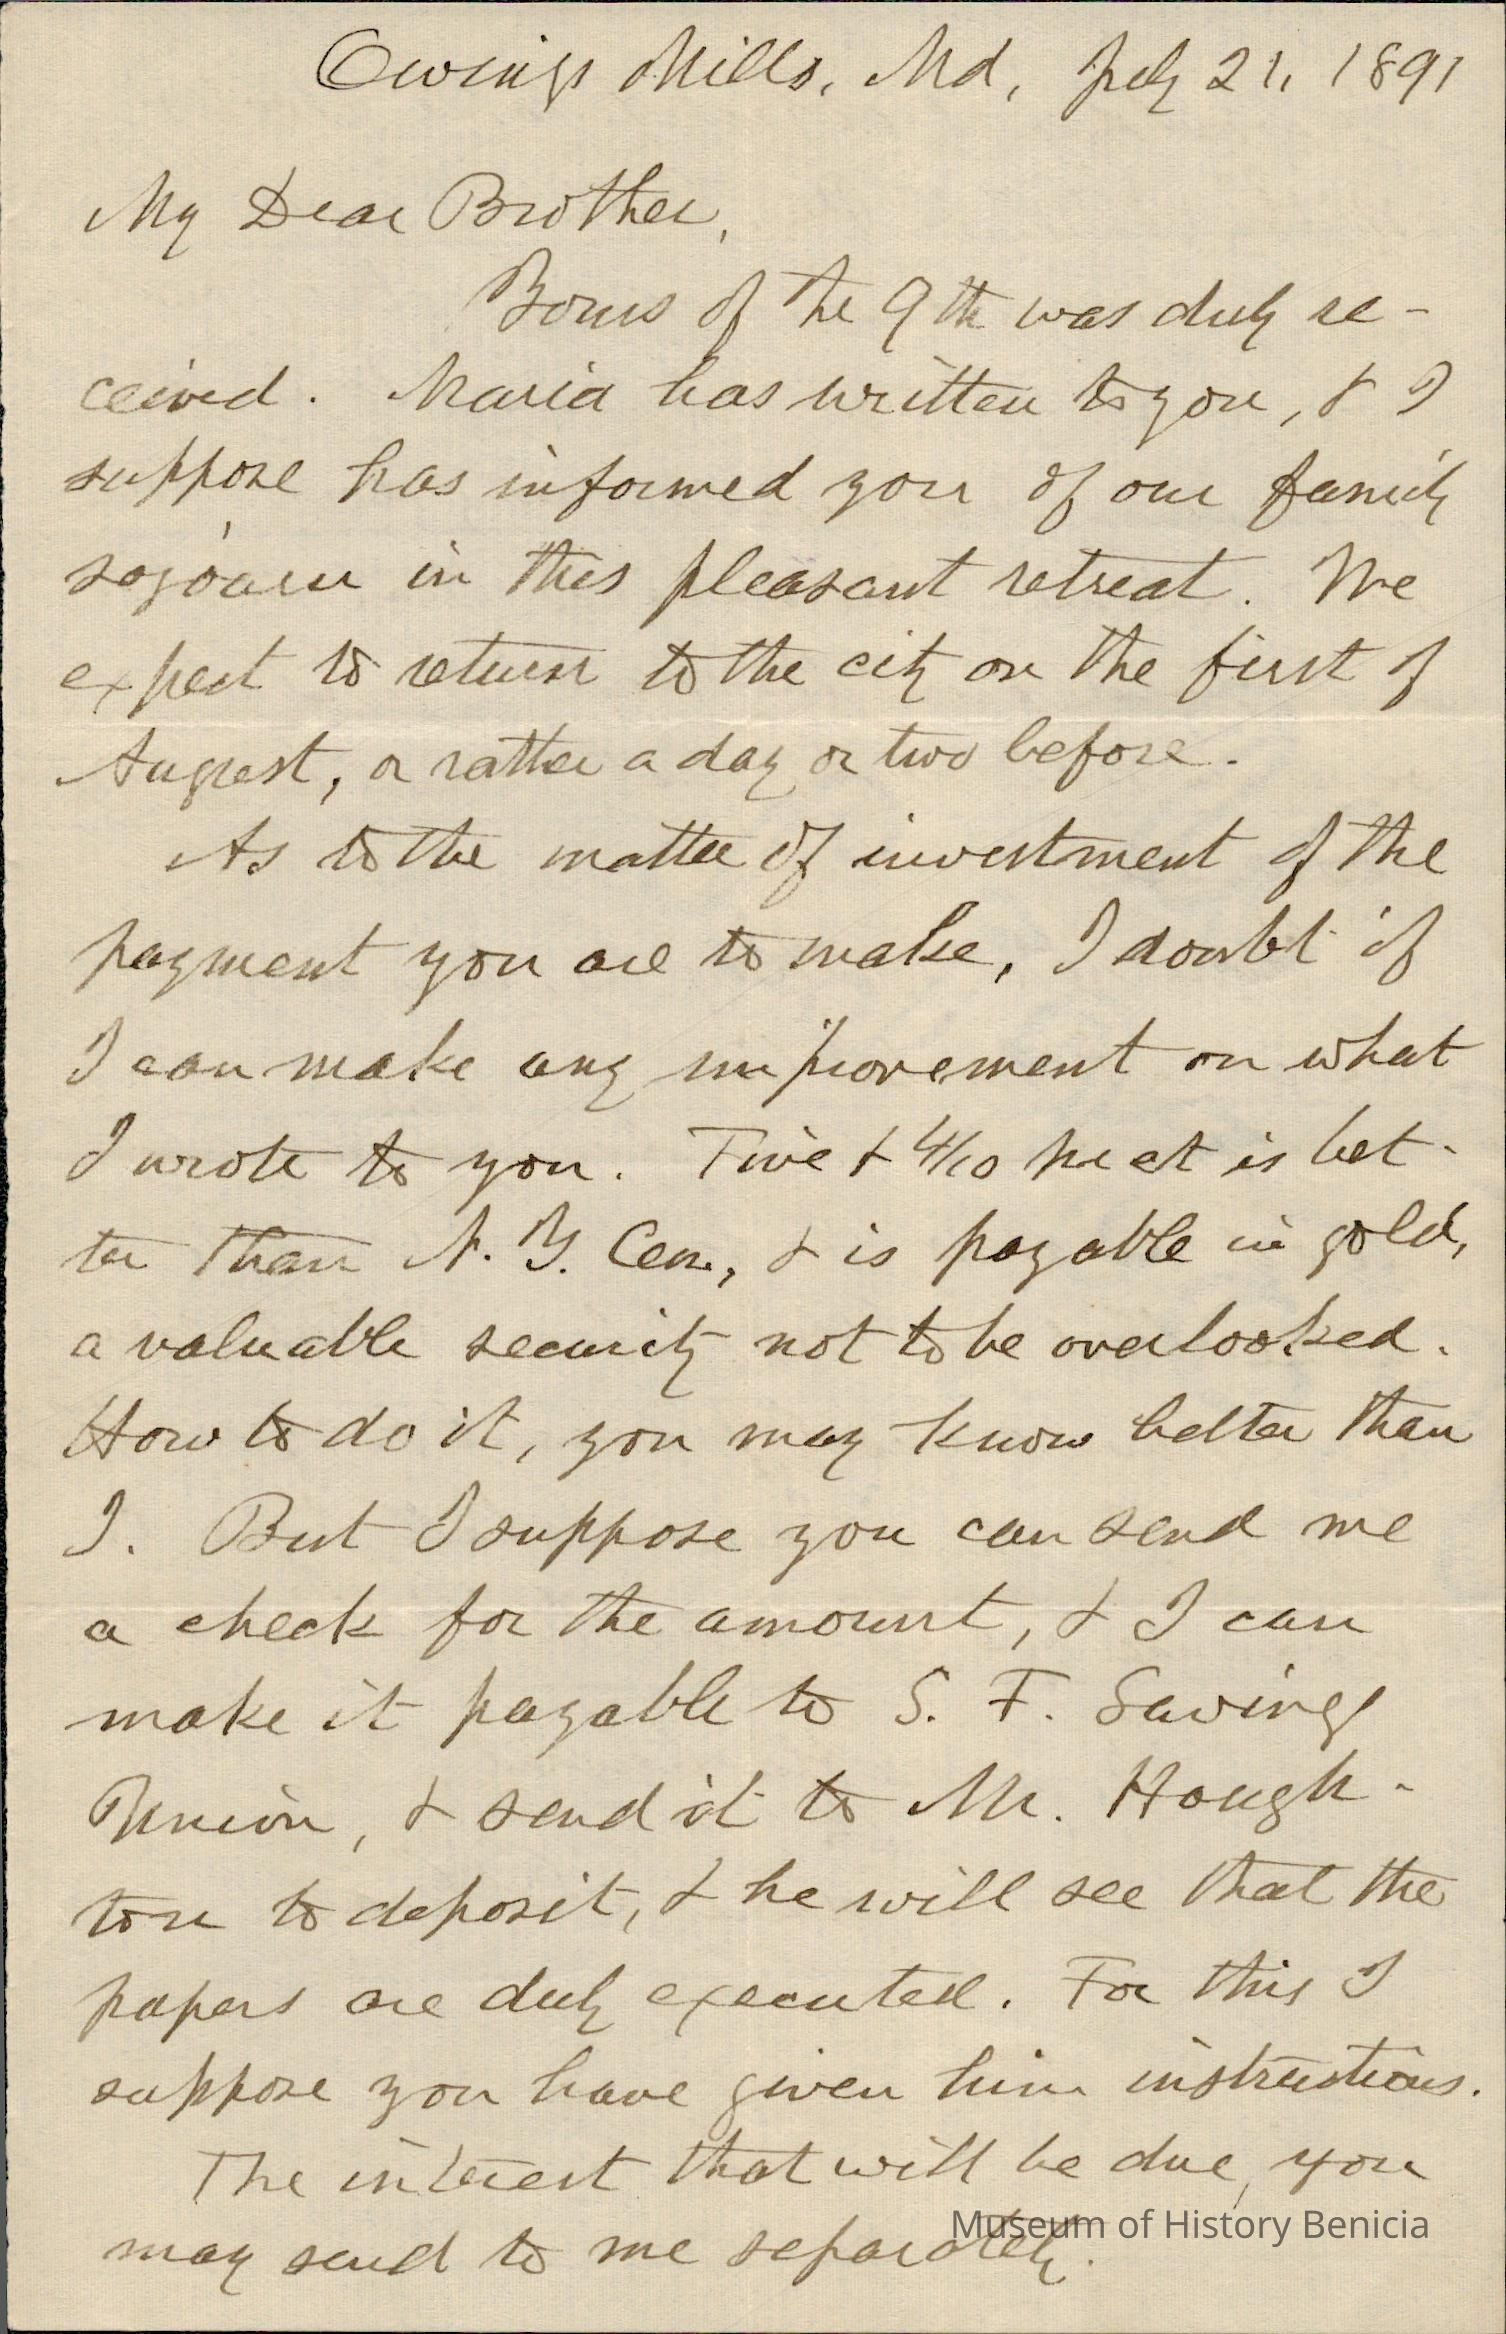 Owings Mills, Md, July 21, 1891
My Dear Brother,
Yours of the 9th was duly re-
ceived. Maria has written to you, & I
suppose has informed you of our family
sojourn in this pleasant retreat. We
expect to return to the city on the first of
August, or rather a day or two before.
As to the matter of investment of the
payment you are to make, I doubt if
I can make any improvement on what
I wrote to you. Five & 4/10 pr ct is bet-
ter than N. Y. Cen., & is payable in gold,
a valuable security not to be overlooked.
How to do it, you may know better than
I. But I suppose you can send me
a check for the amount, & I can
make it payable to S. F. Savings
Union, & send it to Mr. Hough-
ton to deposit, & he will see that the
papers are duly executed. For this I
suppose you have given him instructions.
The interest that will be due, you
may send to me separately.
Museum of History Benicia